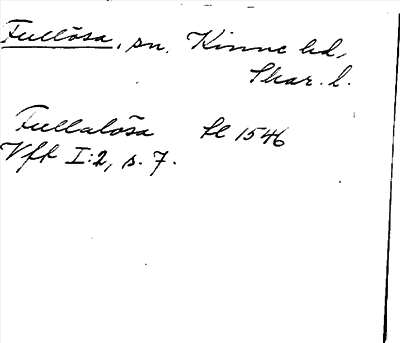 Fullösa, sn. Kinne hd,
Skar. l.
Fullalösa fl 1546
Vft I:2, s. 7.